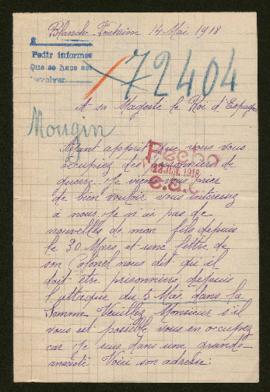 Blanche-Fontaine 14 Mai 1918
Pedir informes
Que se haga así
72404
A sa Majesté le Roi d'Espagne
Mougin
Ayant appris que vous vous
occupiez des prisonniers de
guerre. Je viens vous prier
de bien vouloir vous intéresser
à nous. Je n'ai pas de
nouvelles de mon fils depuis
le 30 Mars et une lettre de
son Colonel nous dit qu'il
doit être prisonniers depuis
l'attaque du 5 Mai dans la
Somme. Veuillez Monsieur s'il
vous est possible vous en occuper
car je suis dans une grande
anxiété. Voici son adresse: